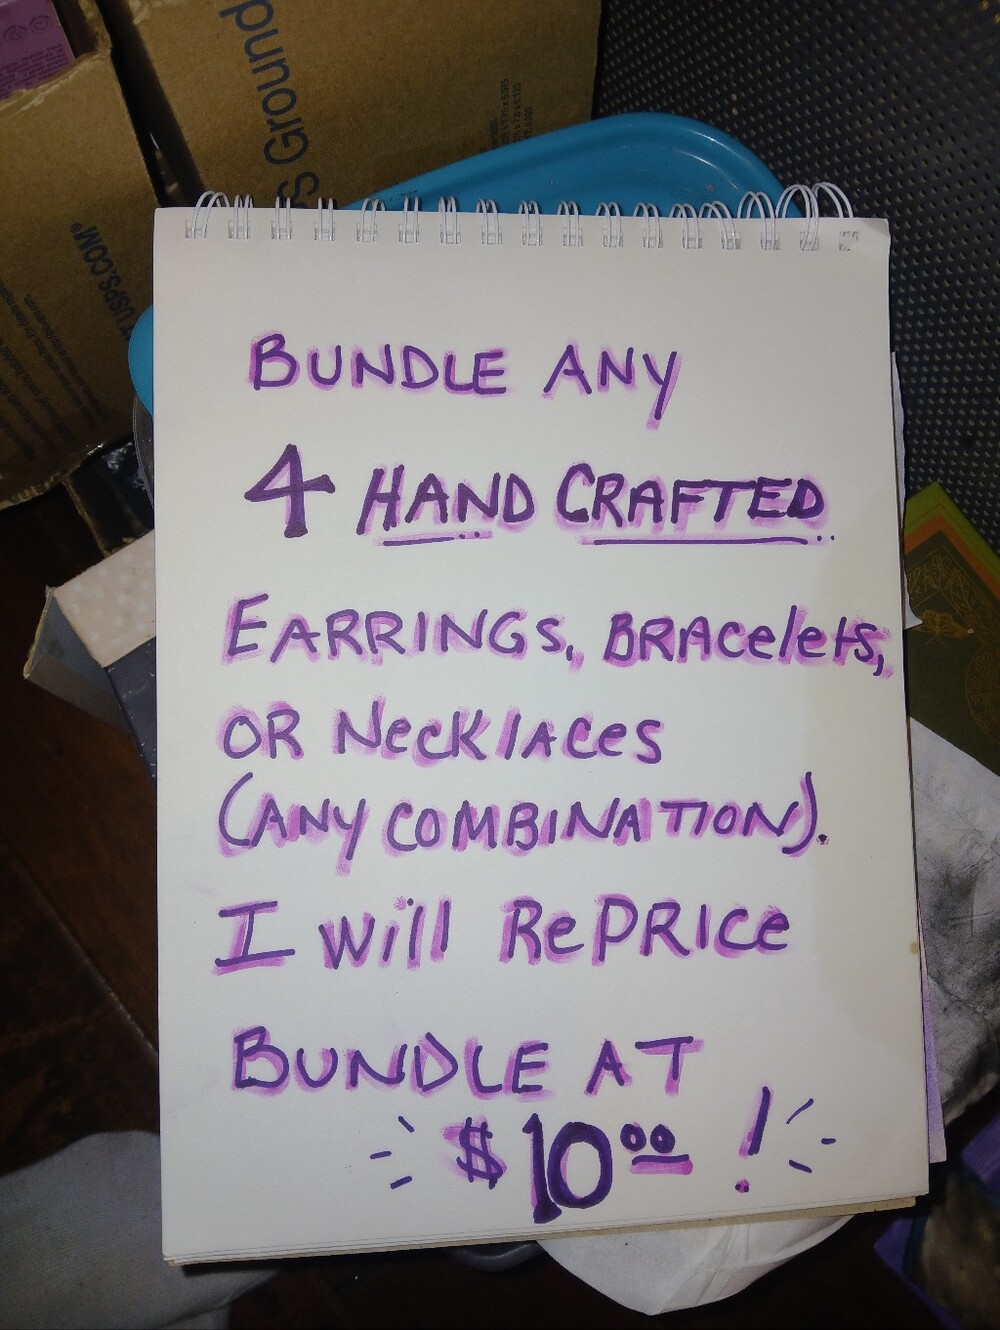 BUNDLE ANY
4 HAND CRAFTED
EARRINGS, BRACelets,
OR NeCKlACes
(ANY COMBINATION).
I Will RePRICe
BUNDLE AT
$10.00 !
Ground
USPS.COM®